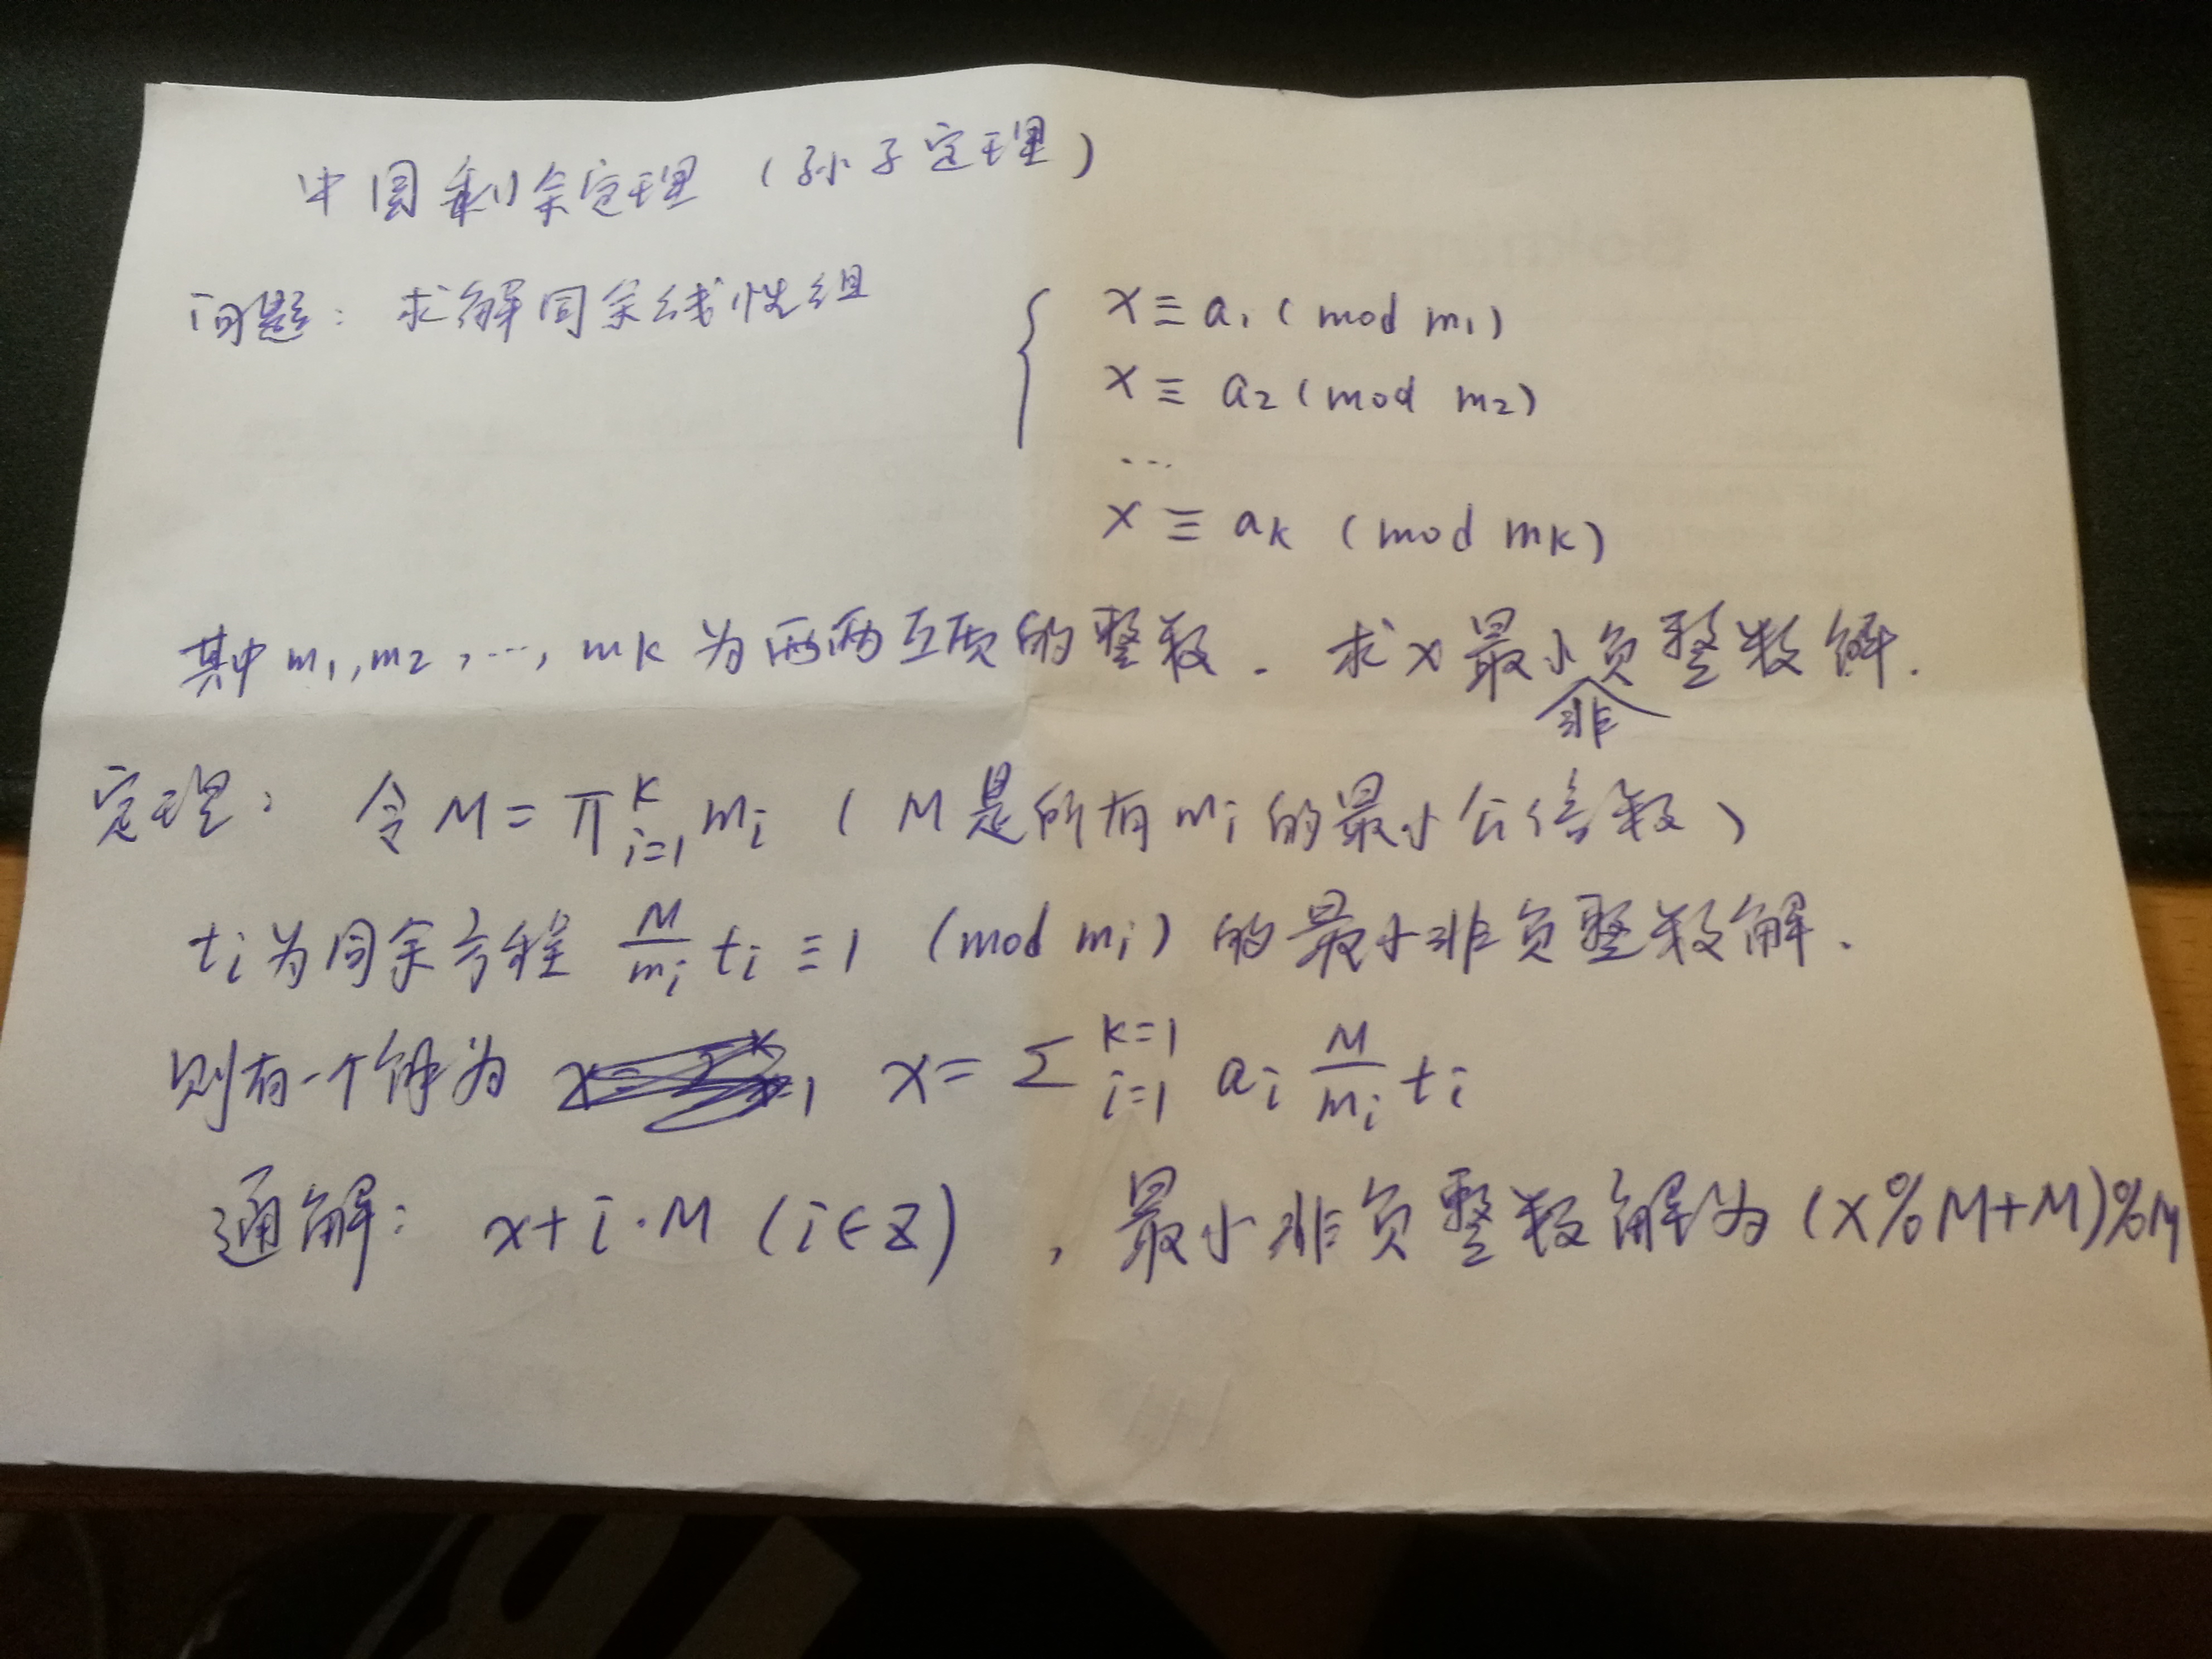 中国剩余定理（孙子定理）
问题：求解同余线性组
x ≡ a₁ ( mod m₁)
x ≡ a₂ ( mod m₂)
...
x ≡ aₖ ( mod mₖ)
其中 m₁, m₂, …, mₖ 为两两互质的整数. 求 x 最小非负整数解.
定理： 令 M = π^k_{i=1} mᵢ ( M 是所有 mᵢ 的最小公倍数 )
tᵢ 为同余方程 M/mᵢ tᵢ ≡ 1 (mod mᵢ) 的最小非负整数解.
则有一个解为 x = Σ^{k=1}_{i=1} aᵢ M/mᵢ tᵢ
通解： x + i·M (i∈Z) , 最小非负整数解为 (x%M+M)%M